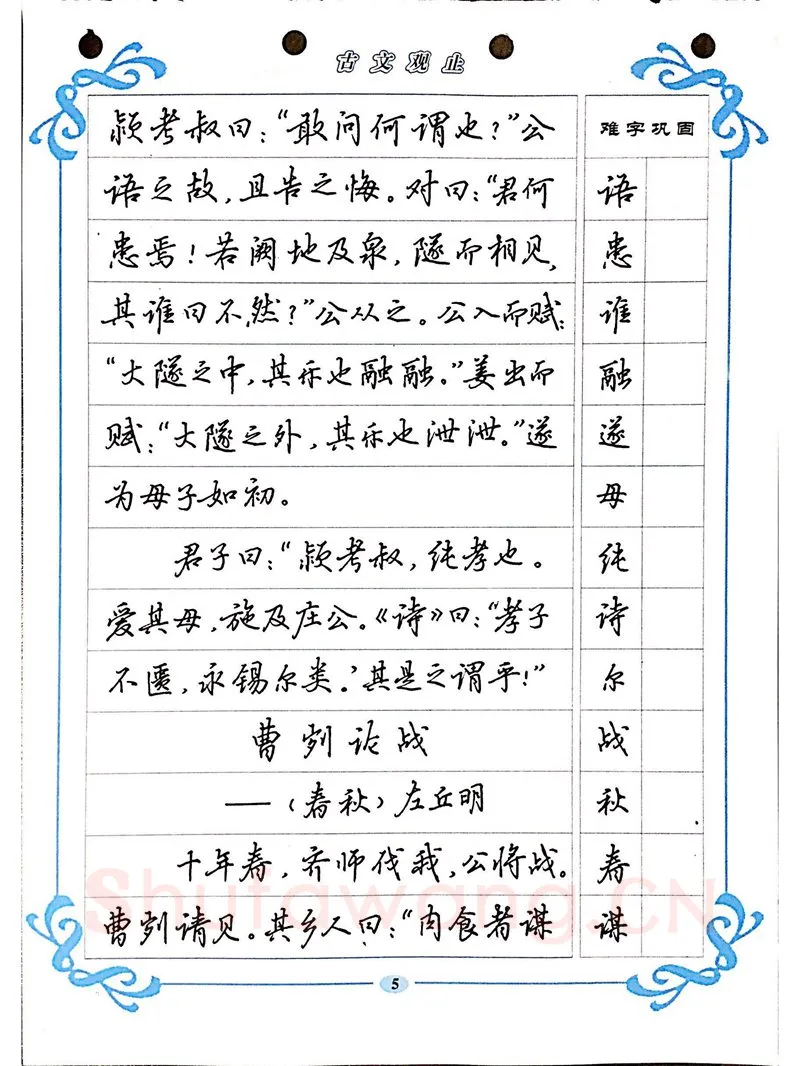 古文观止
颍考叔曰：“敢问何谓也？”公
语之故，且告之悔。对曰：“君何
患焉！若阙地及泉，隧而相见，
其谁曰不然？”公从之。公入而赋：
“大隧之中，其乐也融融。”姜出而
赋：“大隧之外，其乐也泄泄。”遂
为母子如初。
君子曰：“颍考叔，纯孝也。
爱其母，施及庄公。《诗》曰：“孝子
不匮，永锡尔类。’其是之谓乎！”
曹刿论战
——（春秋）左丘明
十年春，齐师伐我，公将战。
曹刿请见。其乡人曰：“肉食者谋
难字巩固
语
患
谁
融
遂
母
纯
诗
尔
战
秋
春
谋
Shufawang.CN
5